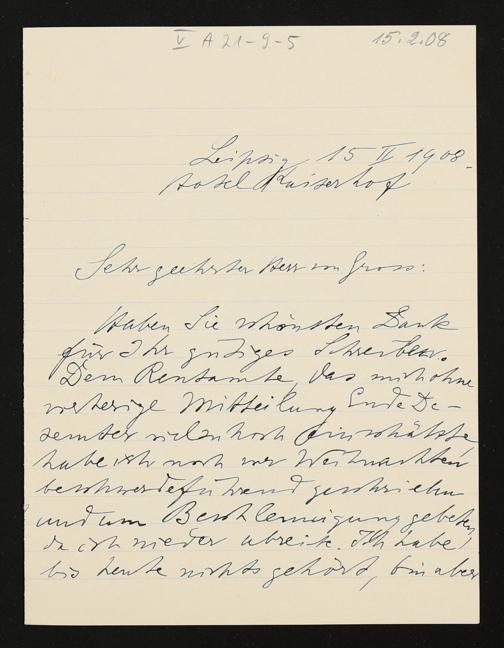 V A 21-9-5 15.2.08
Leipzig 15 II 1908.
Hotel Kaiserhof
Sehr geehrter Herr von Gross:
Haben Sie schönsten Dank
für Ihr gütiges Schreiben.
Dem Rentamte, das mich ohne
vorherige Mitteilung Ende De-
zember viel zu hoch einschätzte,
habe ich noch vor Weihnachten
beschwerdeführend geschrieben
und um Beschleunigung gebeten,
da ich wieder abreise. Ich habe
bis heute nichts gehört, bin aber